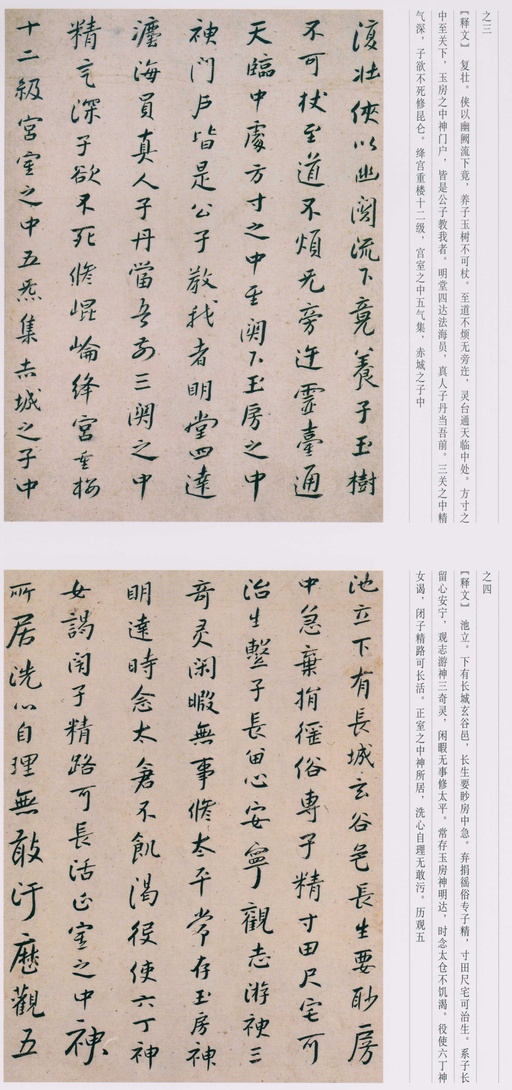 之三
【释文】 复壮。侠以幽阙流下竟，养子玉树不可杖。至道不烦无旁迕，灵台通天临中处。方寸之
中至关下，玉房之中神门户，皆是公子教我者。明堂四达法海员，真人子丹当吾前。三关之中精
气深，子欲不死修昆仑。绛宫重楼十二级，宫室之中五气集，赤城之子中
復壮侠以幽闕流下竟養子玉樹
不可杖至道不煩无旁迕靈臺通
天臨中處方寸之中至関下玉房之中
神門戶皆是公子教我者明堂四達
瀍海員真人子丹當吾前三関之中
精气深子欲不死脩崐崘絳宮重楼
十二級宮室之中五炁集赤城之子中
之四
【释文】 池立。下有长城玄谷邑，长生要眇房中急。弃捐徭俗专子精，寸田尺宅可治生。系子长
留心安宁，观志游神三奇灵，闲暇无事修太平。常存玉房神明达，时念太仓不饥渴。役使六丁神
女谒，闭子精路可长活。正室之中神所居，洗心自理无敢污。历观五
池立下有長城玄谷邑長生要眇房
中急棄捐徭俗専子精寸田尺宅可
治生繫子長留心安寧觀志游神三
奇灵闲暇無事脩太平常存玉房神
明達時念太倉不飢渴役使六丁神
女謁闭子精路可長活正室之中神
所居洗心自理無敢汙歷觀五